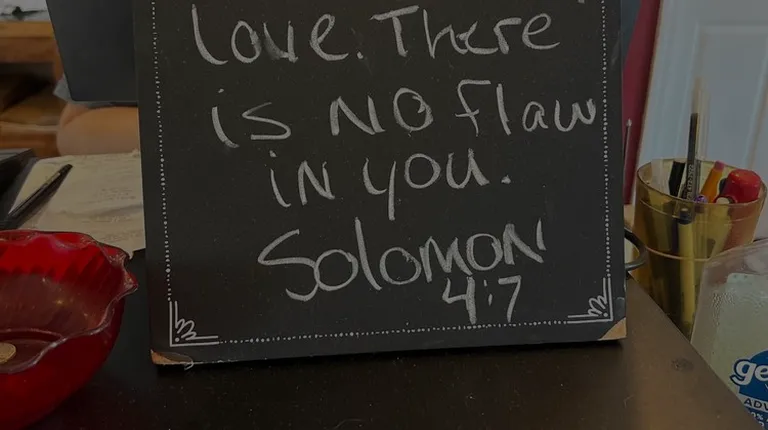 love. There
is NO flaw
in you.
Solomon
4:7
ge
ADV